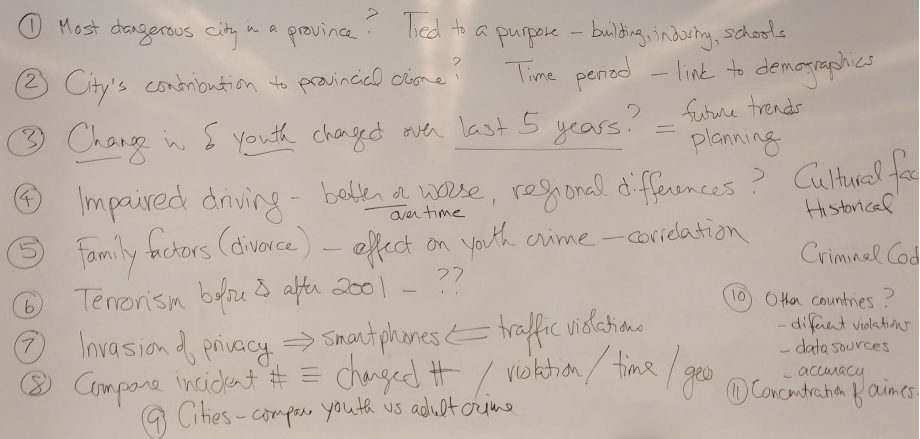 ① Most dangerous city in a province? Tied to a purpose - building, industry, schools
② City's contribution to provincial crime? Time period - link to demographics
③ Change in & youth changed over last 5 years? = future trends planning
④ Impaired driving - better or worse, regional differences? Cultural fac
over time
Historical
⑤ Family factors (divorce) - effect on youth crime - correlation
Criminal Cod
⑥ Terrorism before & after 2001 - ??
⑦ Invasion of privacy ⇒ smartphones ⇐ traffic violations
⑧ Compare incident # ≡ changed # / violation / time / geo
⑨ Cities - compare youth vs adult crime
⑩ Other countries?
- different violations
- data sources
- accuracy
⑪ Concentration of crimes